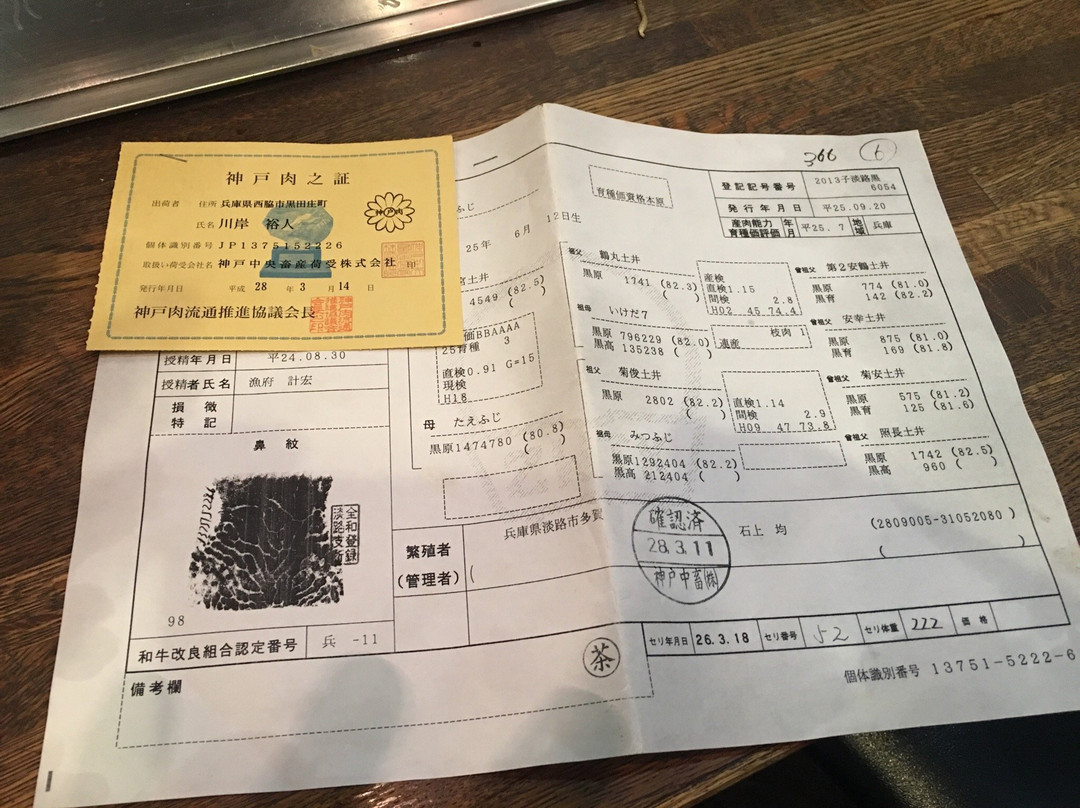 神戸肉之証
出荷者 住所 兵庫県西脇市黒田庄町
氏名 川岸 裕人
神戸肉
個体識別番号 JP1375152226
取扱い荷受会社名 神戸中央畜産荷受株式会社 印
発行年月日 平成 28 年 3 月 14 日
神戸肉流通推進協議会長
366 6
育種価資格本原
登記記号番号 2013子淡路黒 6054
発行年月日 平25.09.20
産肉能力育種価評価 年月 平25. 7 地域 兵庫
ふじ
25年 6月 12日生
宮土井
4549 (82.5)
( )
価BBAAAA
25育種 3
直検0.91 G=15
現検
H18
母 たえふじ
黒原1474780 (80.8)
( )
祖父 鶴丸土井
黒原 1741 (82.3)
産検
直検1.15
間検 2.8
H02 45 74.4
祖母 いけだ7
黒原 796229 (82.0)
黒高 135238 ( )
枝肉 1
遺産
祖父 菊俊土井
黒原 2802 (82.2)
( )
直検1.14
間検 2.9
H09 47 73.8
祖母 みつふじ
黒原1292404 (82.2)
黒高 212404 ( )
曾祖父 第2安鶴土井
黒原 774 (81.0)
黒育 142 (82.2)
曾祖父 安幸土井
黒原 875 (81.0)
黒育 169 (81.8)
曾祖父 菊安土井
黒原 575 (81.2)
黒育 125 (81.6)
曾祖父 照長土井
黒原 1742 (82.5)
黒高 960 ( )
授精年月日 平24.08.30
授精者氏名 漁府 計宏
損徴
特記
鼻紋
全和登録
淡路支所
98
和牛改良組合認定番号 兵 -11
備考欄
繁殖者
(管理者)
兵庫県淡路市多賀
石上 均
(2809005-31052080 )
( )
確認済
28.3.11
神戸中畜(株)
茶
セリ年月日 26.3.18 セリ番号 52 セリ体重 222 価格
個体識別番号 13751-5222-6